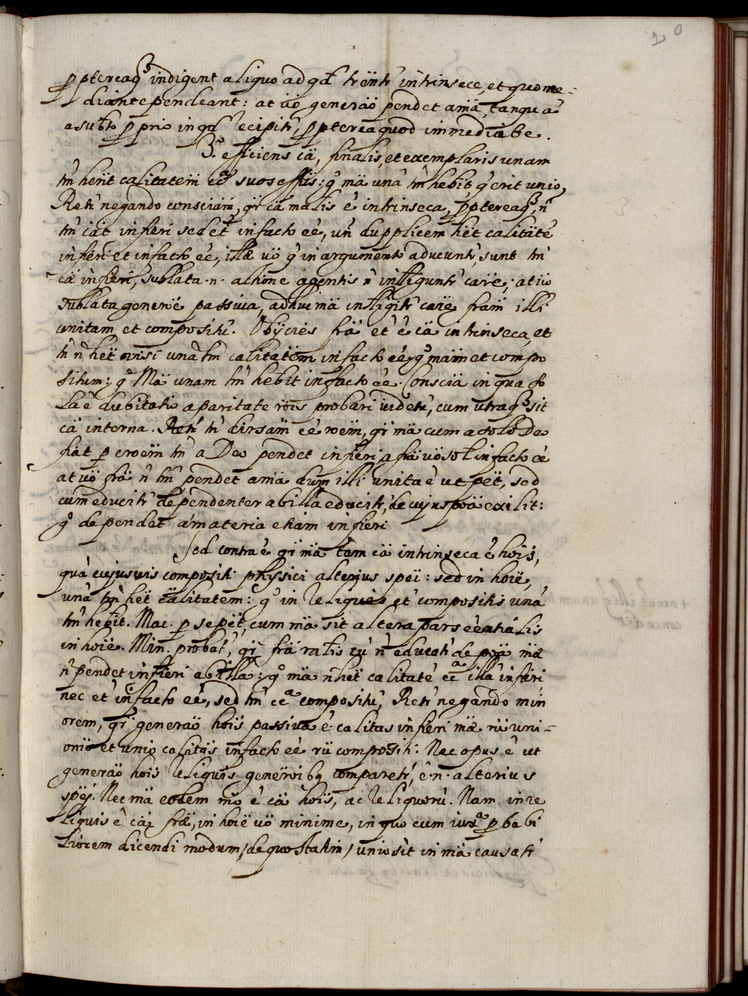 20
pptereaq̃ indigent aliquo ad qd̃ trẽntr̃ intrinsece, et quo me=
diante pendeant: at ūo generaõ pendet a mã, tanquã
a subto pprio in qd̃ recipitr̃, pptereaquod inmediãte.
3.º efficiens cã, finalis, et exemplaris unam
tm̃ hẽnt calitatem suos effus: g.º mã unã tm̃ hebit q̃ erit unio,
Retr̃ negando consciam, qr̃ cã mãlis ẽ intrinseca, pptereaq̃ ñ
tm̃ cãt in fieri sed et̃ in facto eẽ, uñ dupplicem hẽt calitatẽ
in fieri et in facto eẽ, illæ ūo q̃ in argumento aducuntr̃, sunt tm̃
cæ in fieri, sublata .n. actione agentis ñ intliguntr̃ cãre; at ūo
sublata generõe passiua, adhuc mã intligitr̃ cãre fram̃ illi
unitam et compositũ. Obycies frã et̃ ẽ cã intrinseca, et
tñ ñ hẽt nisi unã tm̃ calitatem in facto eẽ g.º mãm et compo
situm: g.º Mã unam tm̃ hebit in facto eẽ. Conscia in qua so
la ẽ dubitatio a paritate rõis probari uidetr̃, cum utraq̃ sit
cã interna. Retr̃ tñ diuersam eẽ rõem, qr̃ mã cum a solo Deo
fiat p creõem tñ a Deo pendet in fieri, a frã ūo sol in facto eẽ
at ūo frã ñ tm̃ pendet a mã dum illi unita ẽ ut pẽt, sed
cum educitr̃ dependenter ab illa educitr̃, de cujus põa exilit:
g.º dependet a materia etiam in fieri
Sed contra ẽ qr̃ mã tam cã intrinseca ẽ hõis,
quã cujusuis compositi physici alterjus spẽi: sed in hõie,
unã tm̃ hẽt calitatem: g.º in reliquis et̃ compositis unã
tm̃ hebit. Mai. p se pẽt, cum mã sit altera pars eẽntialis
in hõie. Min. probatr̃, qr̃ frã rãlis cũ ñ educatr̃ de põa mæ
ñ pendet in fieri ab illa: g.º mã ñ hẽt calitatẽ illã in fieri
nec et̃ in facto eẽ, sed tm̃ compositi, Retr̃ negando min
orem, qr̃ generaõ hõis passiua ẽ calitas in fieri mæ uni=
onis et unio calitas in facto eẽ compositi: Nec opus ẽ ut
generaõ hõis reliquis comparetr̃, ẽ .n. alterius
spẽj. Nec mã eodem mõ ẽ cã hõis, ac reliquorũ. Nam in re
liquis ẽ cã fræ, in hõie ūo minime, in quo cum iuxª pbabi
liorem dicendi modum, (de quo statim) unio sit in mã causatr̃